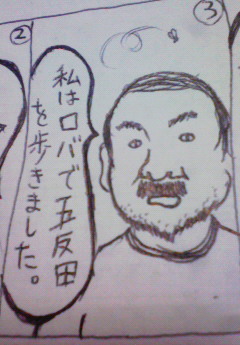 ②
③
私はロバで五反田
を歩きました。